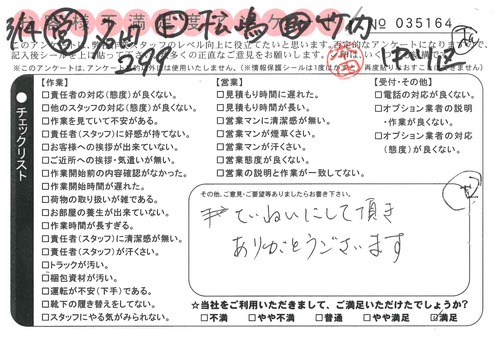 お客様満足度アンケート
No 035164
㊂営 石田 ㊦ 松嶋 竹内
399
このアンケートは、弊社スタッフのレベル向上に役立てたいと思います。否定的なアンケートになりますので、
※このアンケートは、アンケート
【作業】
□責任者の対応(態度)が良くない。
□他のスタッフの対応(態度)が良くない。
□作業を見ていて不安がある。
□責任者(スタッフ)に好感が持てない。
□お客様への挨拶が出来ていない。
□ご近所への挨拶・気遣いが無い。
□作業開始前の内容確認がなかった。
□作業開始時間が遅れた。
□荷物の取り扱いが雑である。
□お部屋の養生が出来ていない。
□作業時間が長すぎる。
□責任者(スタッフ)に清潔感が無い。
□責任者(スタッフ)が汗くさい。
□トラックが汚い。
□梱包資材が汚い。
□運転が不安(下手)である。
□靴下の履き替えをしてない。
□スタッフにやる気がみられない。
【営業】
□見積もり時間に遅れた。
□見積もり時間が長い。
□営業マンに清潔感が無い。
□営業マンが煙草くさい。
□営業マンが汗くさい。
□営業態度が良くない。
□営業の説明と作業が一致してない。
【受付・その他】
□電話の対応が良くない。
□オプション業者の説明
・作業が良くない。
□オプション業者の対応
(態度)が良くない。
チェックリスト
その他、ご意見・ご要望等ありましたらお書き下さい。
ていねいにして頂き
ありがとうございます
☆当社をご利用いただきまして、ご満足いただけたでしょうか?
□不満 □やや不満 □普通 □やや満足 ☑満足